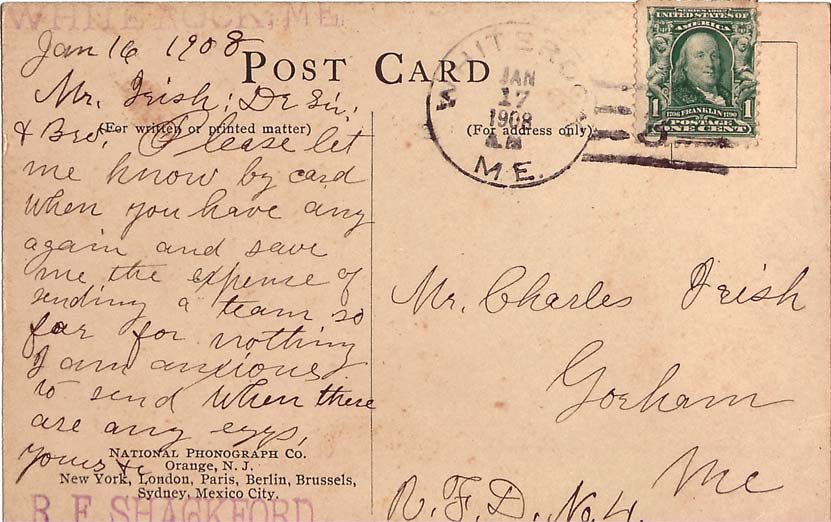 WHITE ROCK, ME
Jan 16 1908
POST CARD
Mr. Irish; Dr Sir;
& Bro, Please let
(For written or printed matter)
me know by card
when you have any
again and save
me the expense of
sending a team so
far for nothing
I am anxious
to send when there
are any eggs,
yours &c
NATIONAL PHONOGRAPH CO.
Orange, N. J.
New York, London, Paris, Berlin, Brussels,
Sydney, Mexico City.
R F SHACKFORD
WHITE ROCK
JAN
17
1908
AM
M.E.
(For address only)
SERIES 1902
UNITED STATES OF
AMERICA
1706 FRANKLIN 1790
1 1
POSTAGE
ONE CENT
Mr. Charles Irish
Gorham
Me
R. F. D. No. 4.